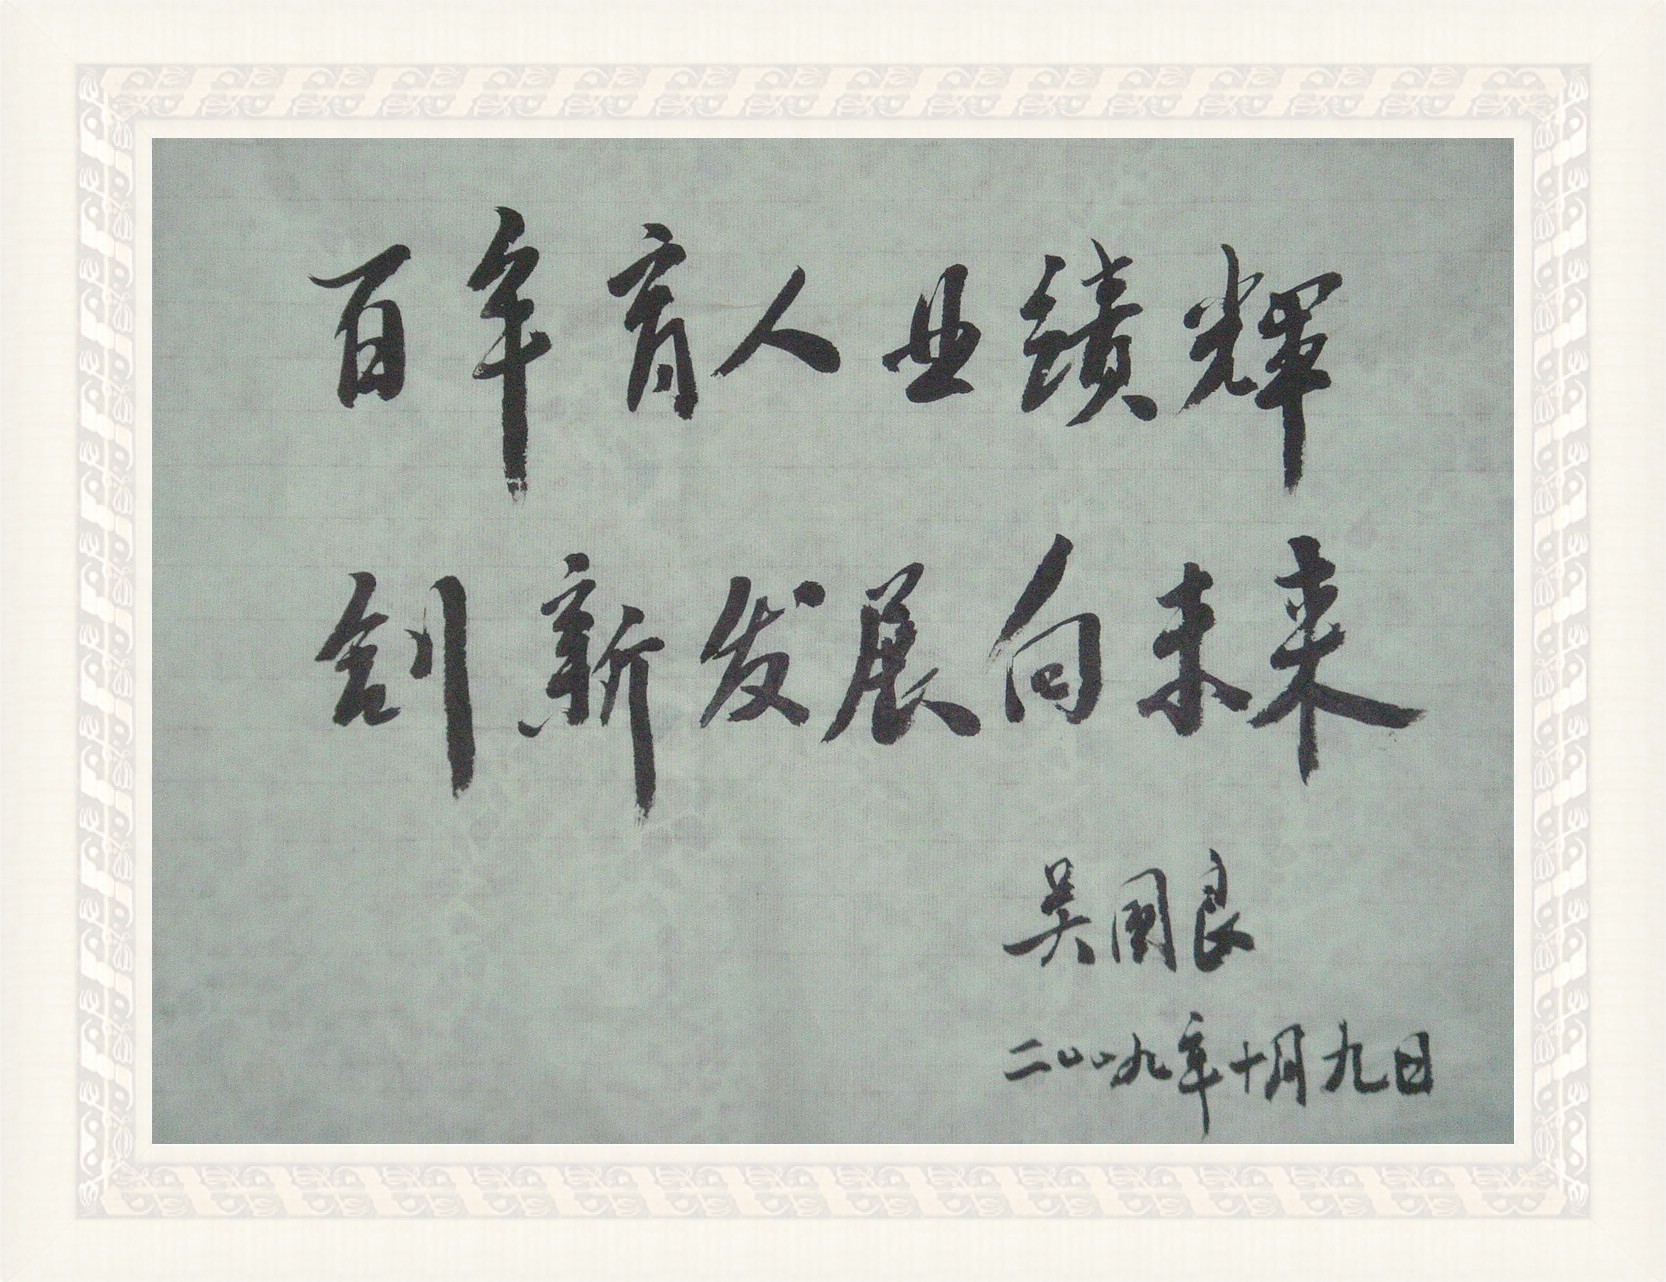 百年育人业绩辉
创新发展向未来
吴国良
二〇〇九年十月九日